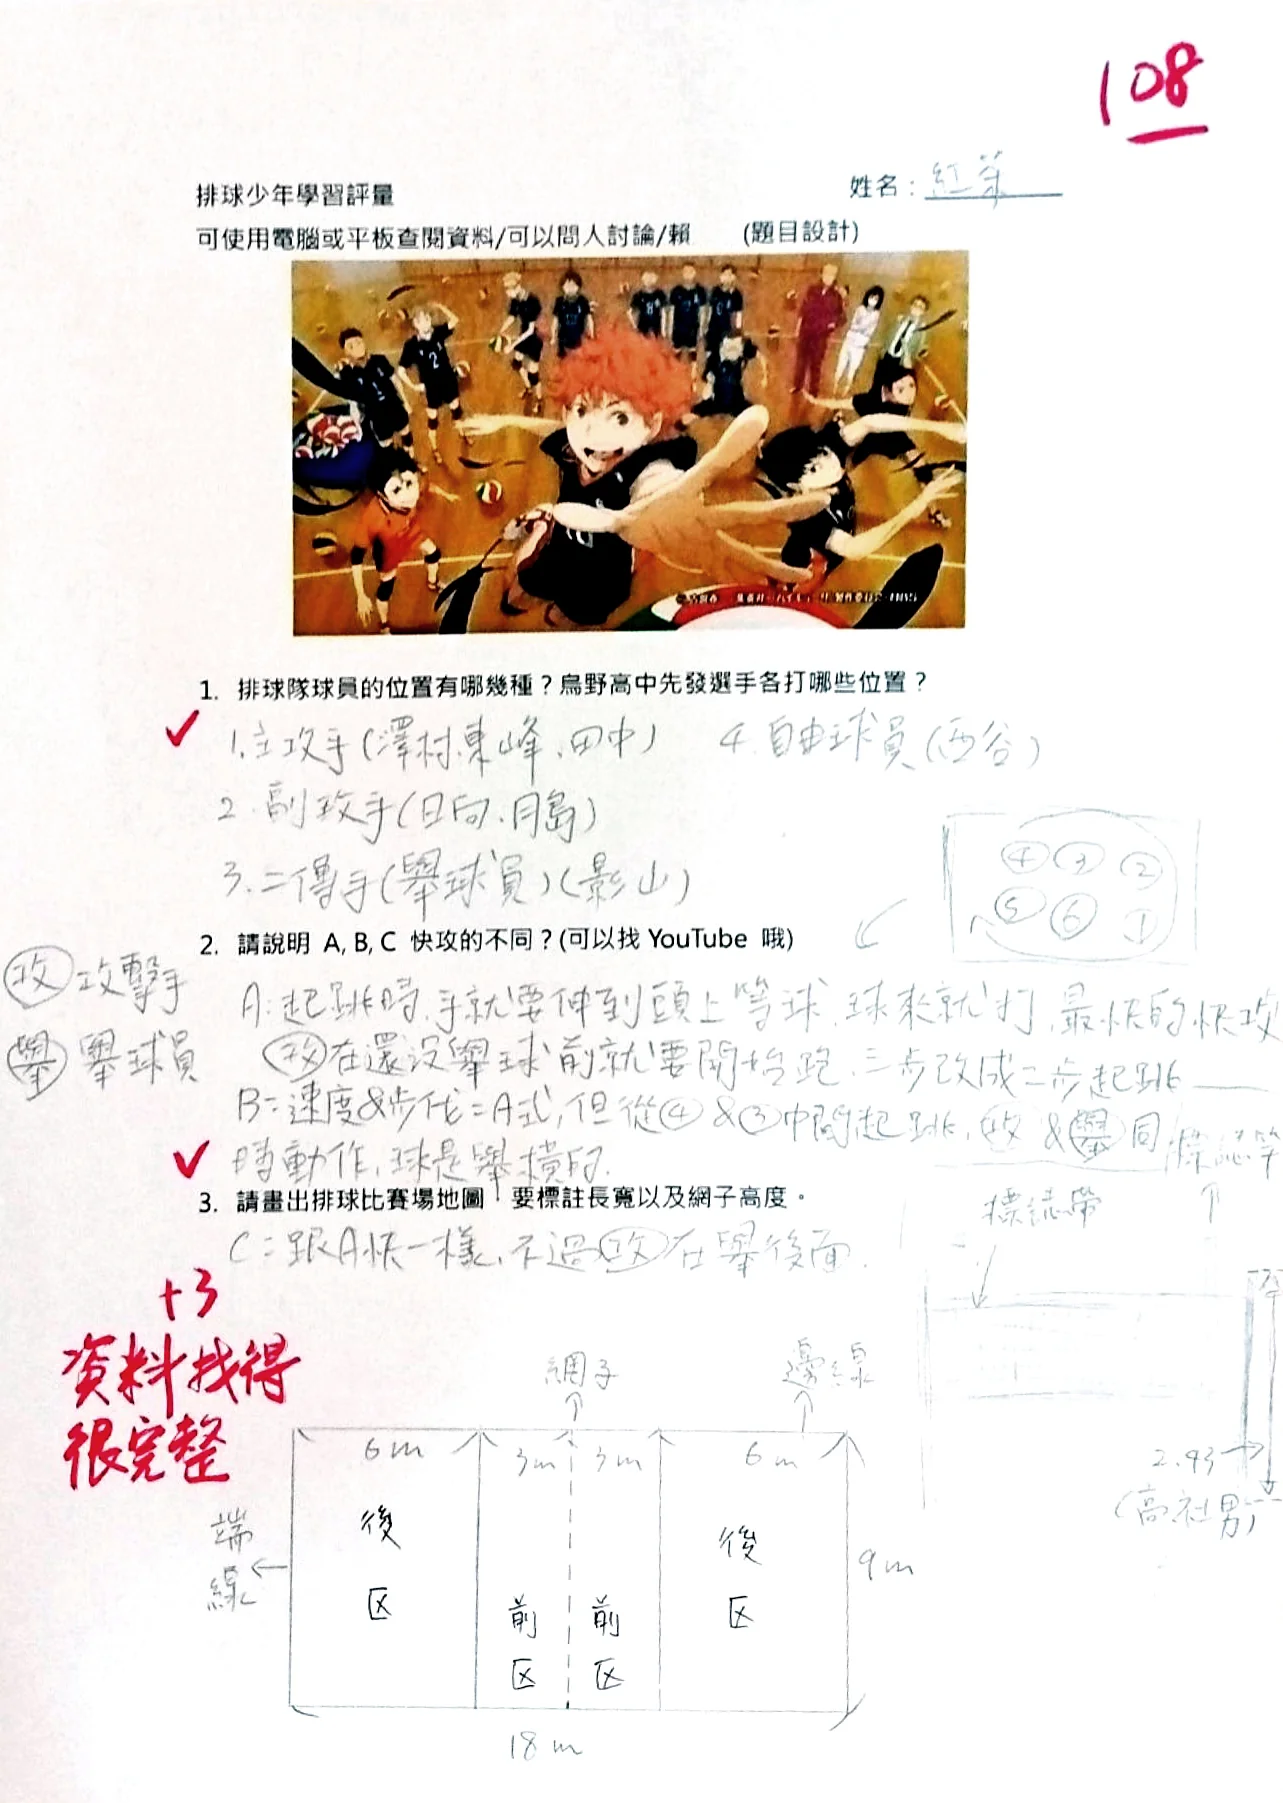 108
排球少年學習評量
姓名：紅茶
可使用電腦或平板查閱資料/可以問人討論/賴 (題目設計)
1. 排球隊球員的位置有哪幾種？烏野高中先發選手各打哪些位置？
1.主攻手(澤村、東峰、田中) 4.自由球員(西谷)
2.副攻手(日向、月島)
3.二傳手(舉球員)(影山)
④ ③ ②
⑤ ⑥ ①
2. 請說明 A, B, C 快攻的不同？(可以找 YouTube 哦)
攻 攻擊手
舉 舉球員
A:起跳時,手就要伸到頭上等球,球來就打,最快的快攻
攻在還沒舉球前就要開始跑,三步改成二步起跳
B:速度&步伐=A式,但從④&③中間起跳,攻&舉同
時動作,球是舉橫的.
3. 請畫出排球比賽場地圖，要標註長寬以及網子高度。
C:跟A快一樣,不過攻在舉後面.
標誌竿
標誌帶
+3
資料找得
很完整
網子
邊線
6m 3m 3m 6m
2.43
(高社男)
端線
後区 前区 前区 後区
9m
18m